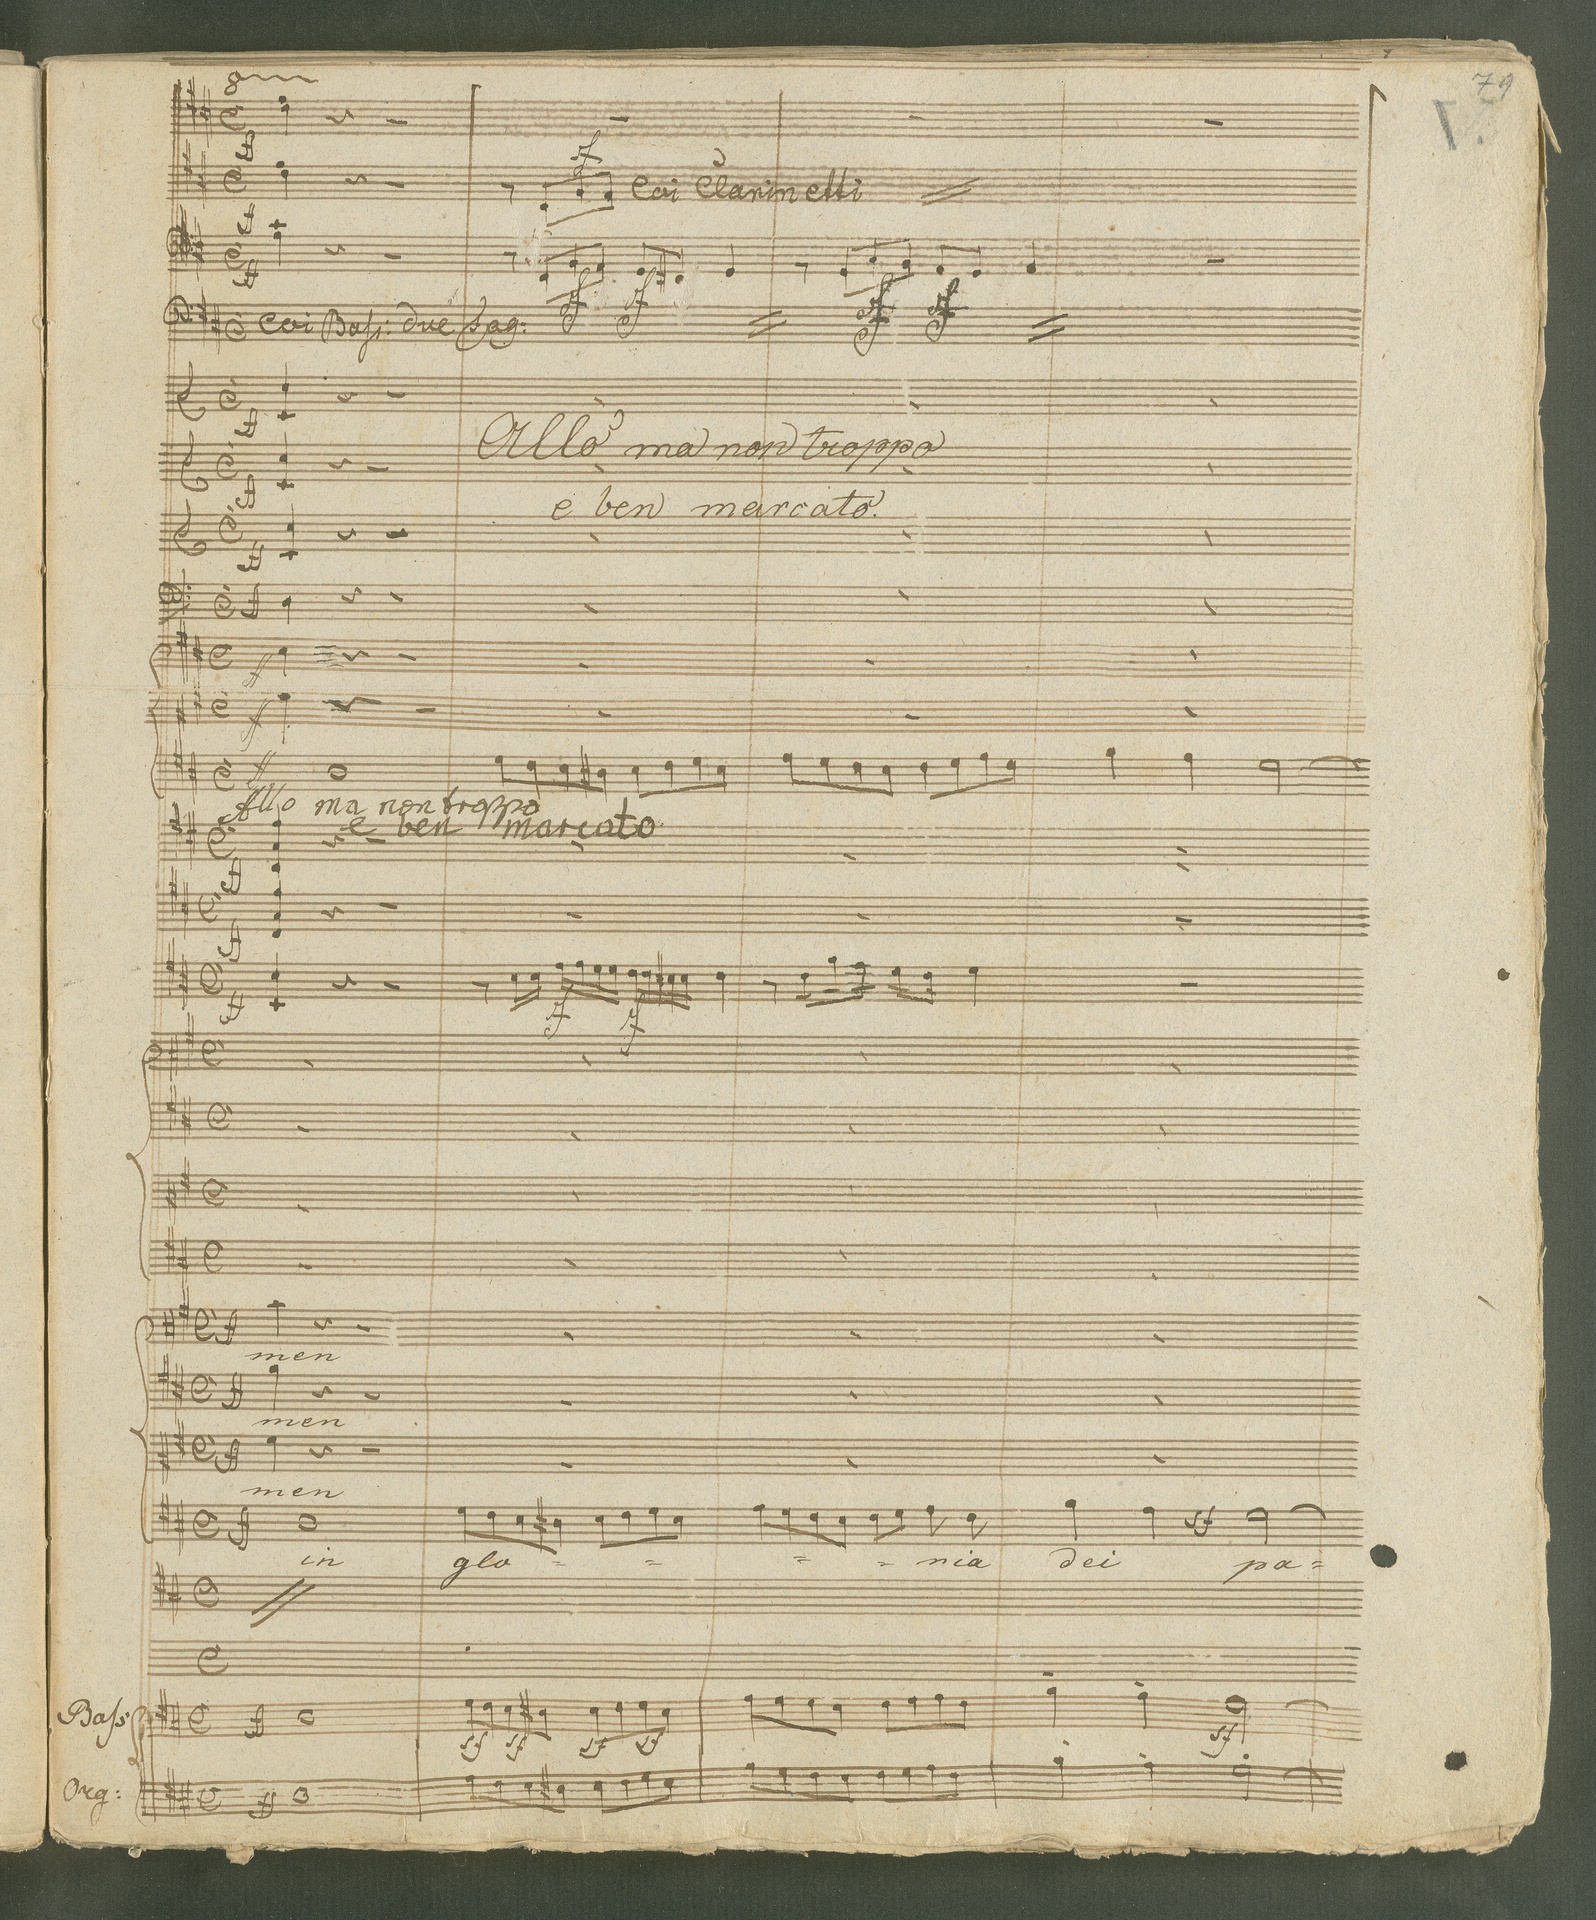 79
8
sf
Coi Clarinetti
sf sf sf sf
Coi Baſs: due Fag:
Allo ma non troppo
e ben marcato.
Allo ma non troppo
e ben marcato
sf sf
men
men
men
in glo = = = = ria dei pa =
Baſs
sf sf sf sf sf
Org: